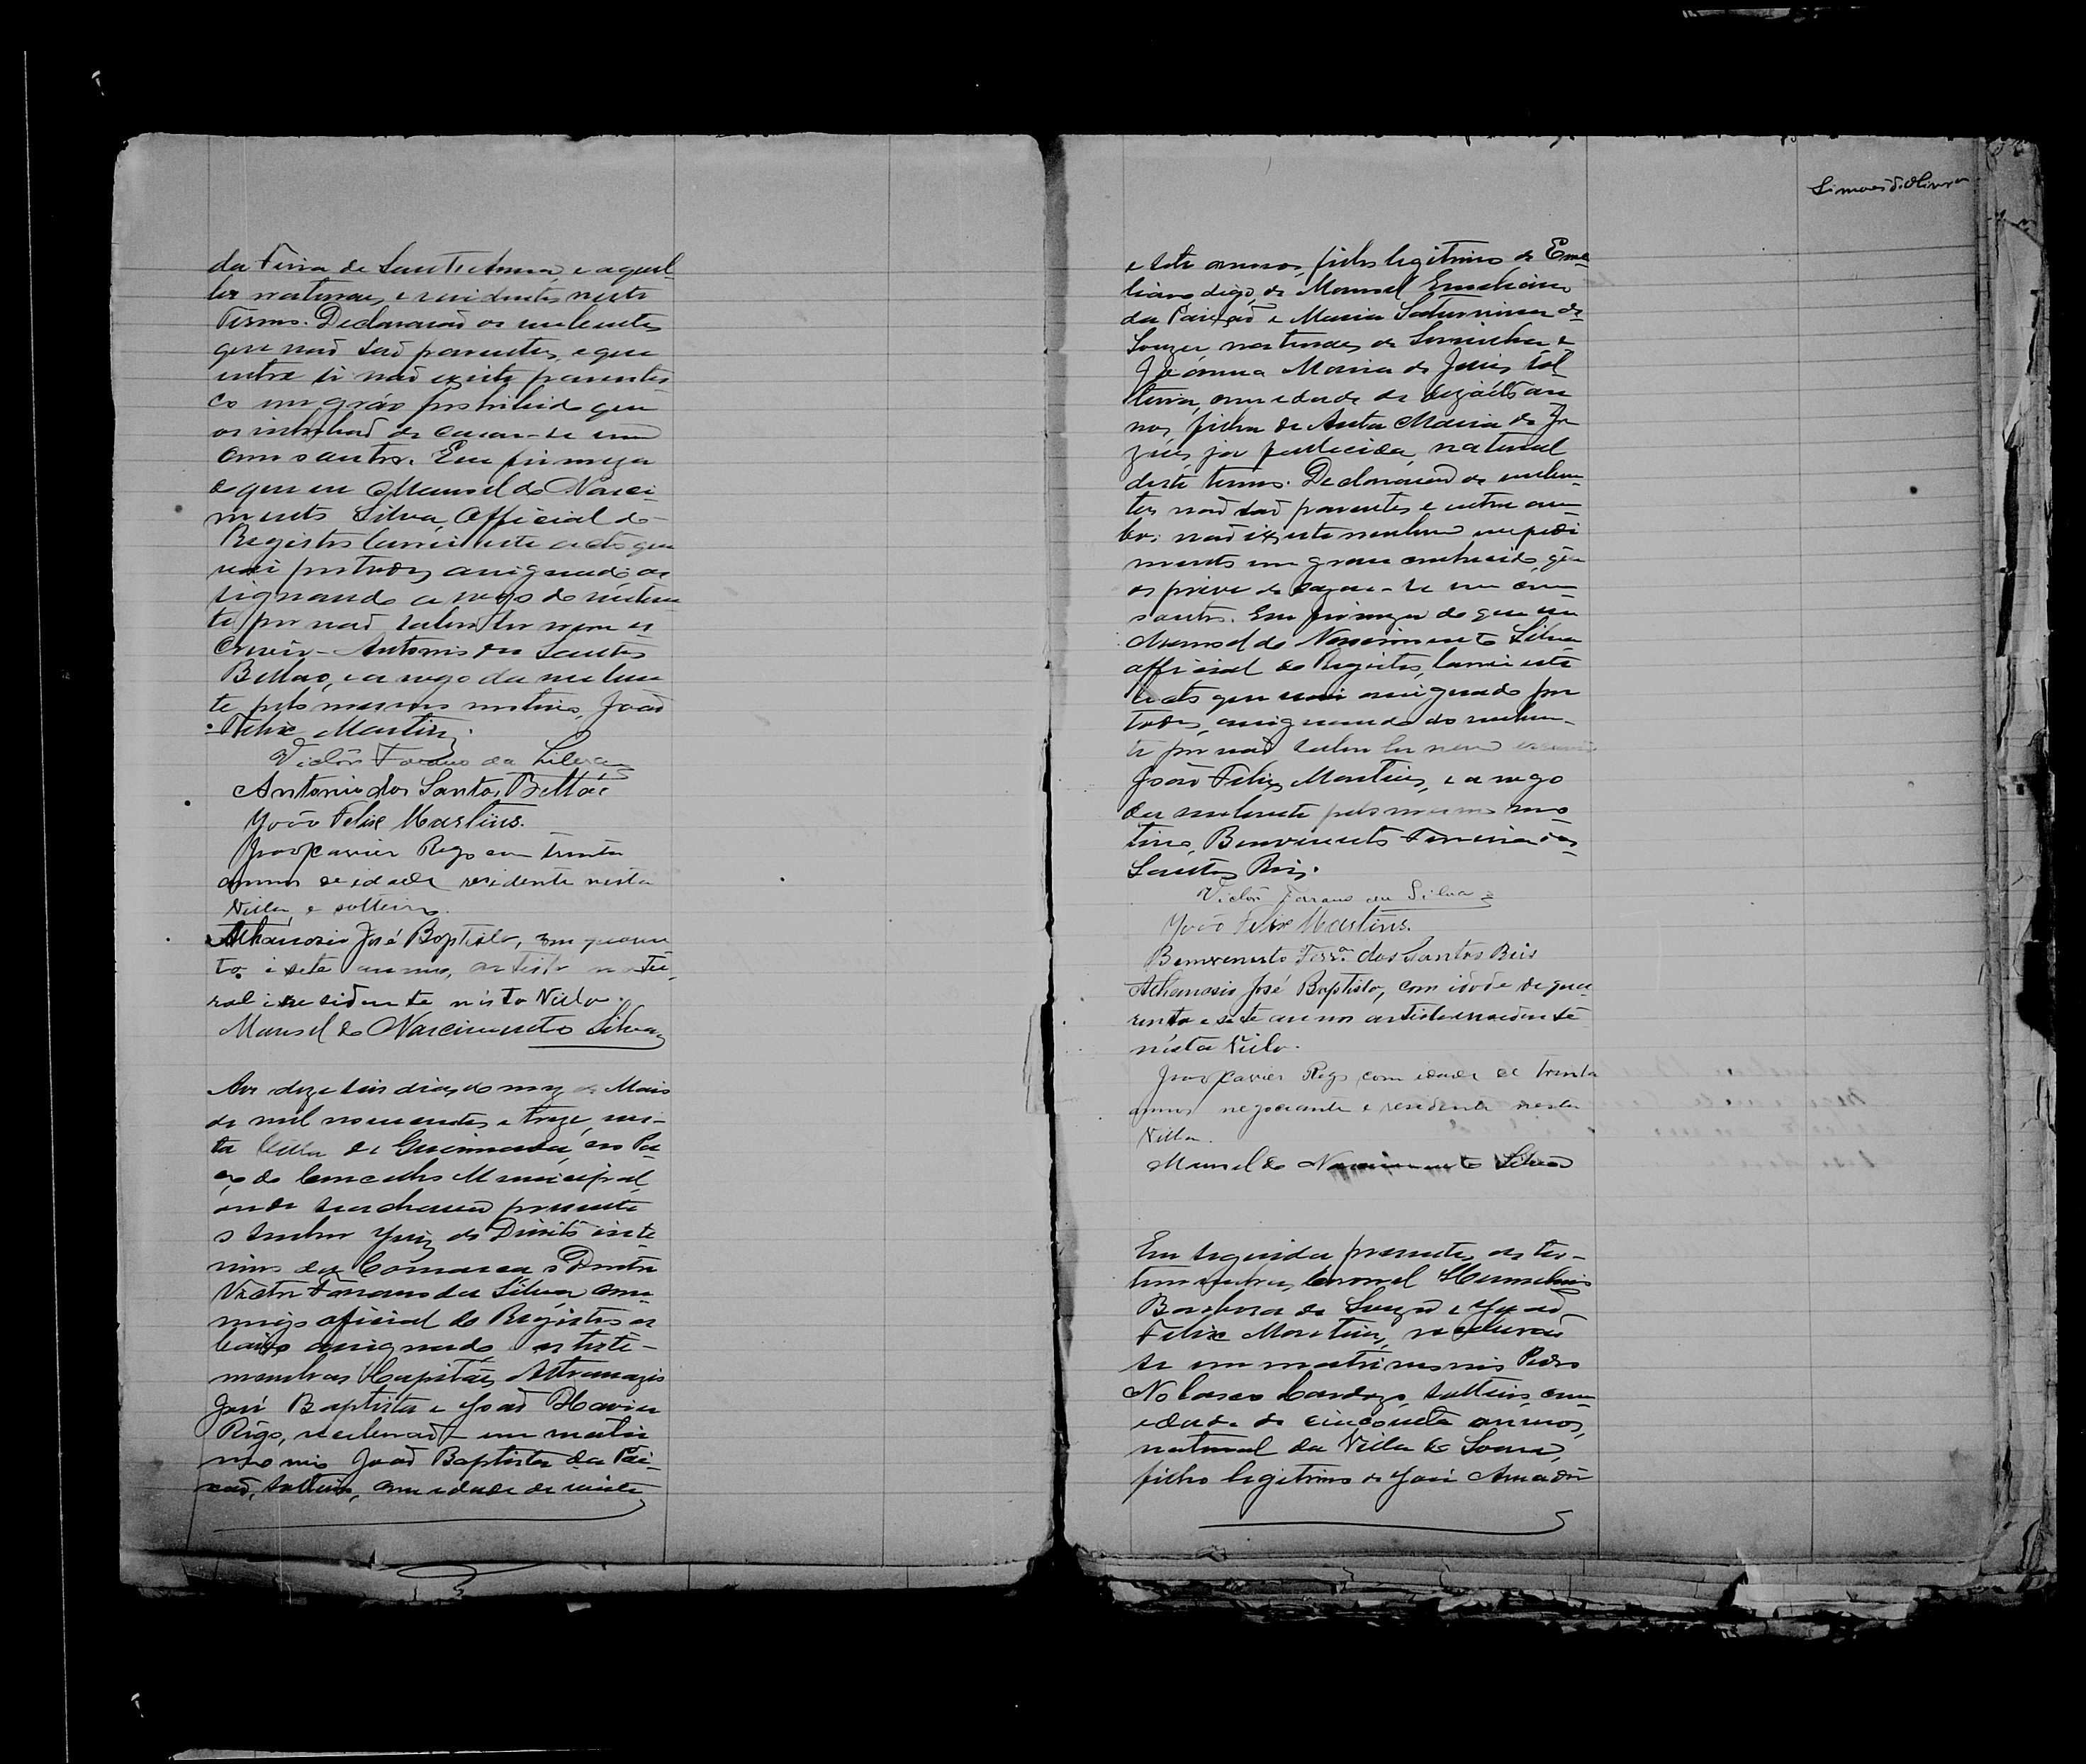 da Feira de Sant'Anna, e aquel-
les naturaes, e residentes neste
Termo. Declararaõ os nubentes
que naõ saõ parentes, e que
entre si naõ existe parentes-
co em gráo prohibido que
os inhibaõ de casar-se um
com o outro. Em firmeza
do que eu Manoel do Nasci-
mento Silva, Official do
Registro lavrei este acto que
vai por todos assignado, as
signando a rogo do nuben
te por naõ saber ler nem es
crever - Antonio dos Santos
Bellao, e a rogo da nuben
te pelo mesmo motivo, Joaõ
Felix Martins.
Victor Farano da Silva
Antonio dos Santos Bellão
João Felix Martins.
João Xavier Rego com trinta
annos de idade residente nesta
Villa, e solteiro.
Athanasio José Baptista, com quaren
ta e sete annos, artista natu
ral e residente nesta Villa.
Manoel do Nascimento Silva
Aos dezeseis dias do mez de Maio
de mil novecentos e treze, nes-
ta Villa de no Pa-
ço do Concelho Municipal,
onde se achavaõ presente
o Senhor Juiz de Direito inte
rino da Comarca o Doutor
Victor Farano da Silva com-
migo oficial do Registro a
baixo assignado, as teste-
munhas Capitão Athanazio
José Baptista e Joaõ Xavier
Rêgo, receberaõ-se em matri
monio Joaõ Baptista da Pai-
xaõ, solteiro, com edade de vinte
Simões d'Oliveira
e sete annos, filho legitimo de Eme-
liano, digo, de Manoel Emeliano
da Paixaõ e Maria Saturnina de
Souza, naturaes de Serrinha, e
Joanna Maria de Jesus, sol
teira, com edade de dezoito an
nos, filha de Anta Maria de Je
zus, ja fallecida, natural
deste termo. Declararaõ os nuben-
tes naõ saõ parentes e entre am-
bos naõ existe nenhum impedi
mento em grau conhecido, que
os prive de cazar-se um com
o outro. Em firmeza do que eu
Manoel do Nascimento Silva
official do Registro, lavrei este
acto que vai assignado por
todos, assignando do nuben-
te por naõ saber ler nem escrever
João Felix Martins, e a rogo
da nubente pelo mesmo mo
tivo, Benvenuto Ferreira dos
Santos Reis.
Victor Farano da Silva
João Felix Martins.
Bemvenuto Ferr.ª dos Santos Reis
Athanasio José Baptista, com idade de qua
renta e sete annos artista e residente
nesta Villa.
João Xavier Rego com edade de trinta
annos negociante e residente nesta
Villa.
Manoel do Nascimento Silva
Em seguida presente as tes-
temunhas, Coronel
Barbosa de Souza e Joaõ
Felix Martins, receberaõ
se em matrimonio Pedro
Nolasco Cardozo, solteiro, com
edade de cincoenta annos,
natural da Villa do Soure,
filho legitimo de José Amador